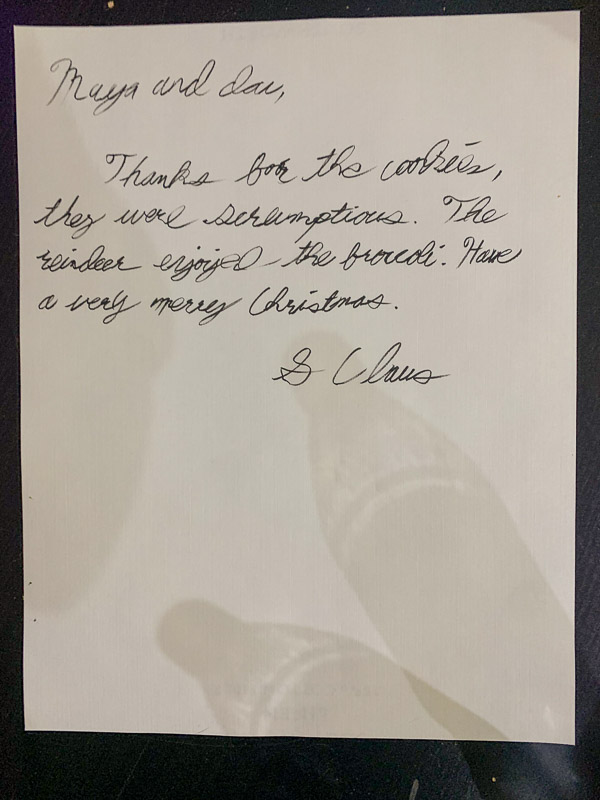 Maya and dav,
Thanks for the cookies,
they were scrumptious. The
reindeer enjoyed the broccoli. Have
a very merry Christmas.
S Claus